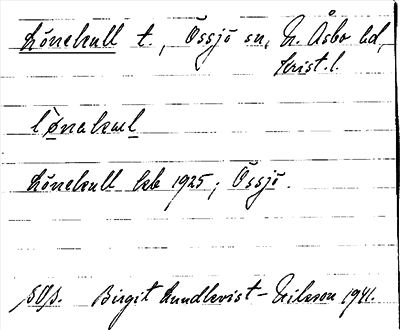 Lönekull t., Össjö sn, N. Åsbo hd,
Krist. l.
lø̀nakul
Lönekull kb 1925; Össjö.
SOß. Birgit Lundkvist-Nilsson 1941.